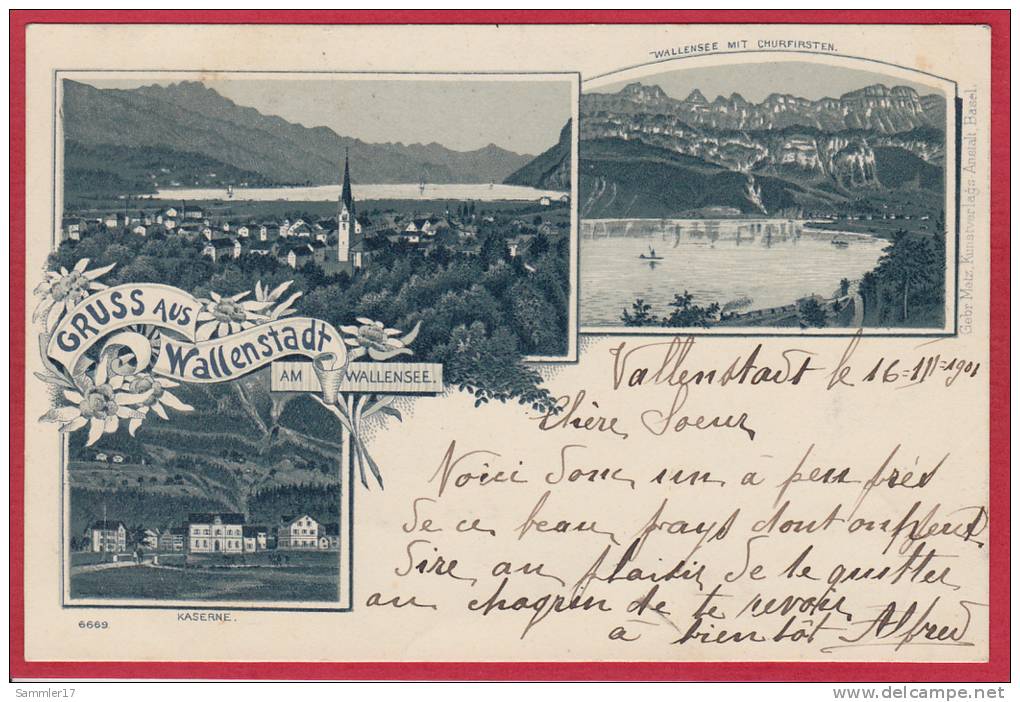 WALLENSEE MIT CHURFIRSTEN.
Gebr. Metz, Kunstverlags-Anstalt, Basel.
GRUSS AUS
Wallenstadt
AM WALLENSEE.
Vallenstadt le 16=III=1901
Chère Soeur
Voici donc un à peu près
de ce beau pays dont on peut
dire au plaisir de le quitter
au chagrin de te revoir
à bientôt Alfred
KASERNE.
6669.
Sammler17
http://www.delcampe.net